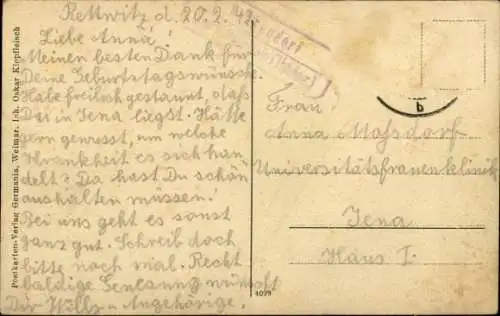 Rettwitz d. 20.2.42.
Liebe Anna!
Meinen besten Dank für
Deine Geburtstagswünsche.
Habe freilich gestaunt, dass
Du in Jena liegst. Hätte
gern gewusst, um welche
Krankheit es sich han
delt? Da hast Du schön
aushalten müssen.
Bei uns geht es sonst
ganz gut. Schreib doch
bitte noch mal. Recht
baldige Genesung wünscht
Dir u. Angehörige.
Postkarten-Verlag Germania, Weimar, Inh. Oskar Kiepfleisch
b
Frau
Anna Mossdorf
Universitätsfrauenklinik
Jena
Haus I.
4098